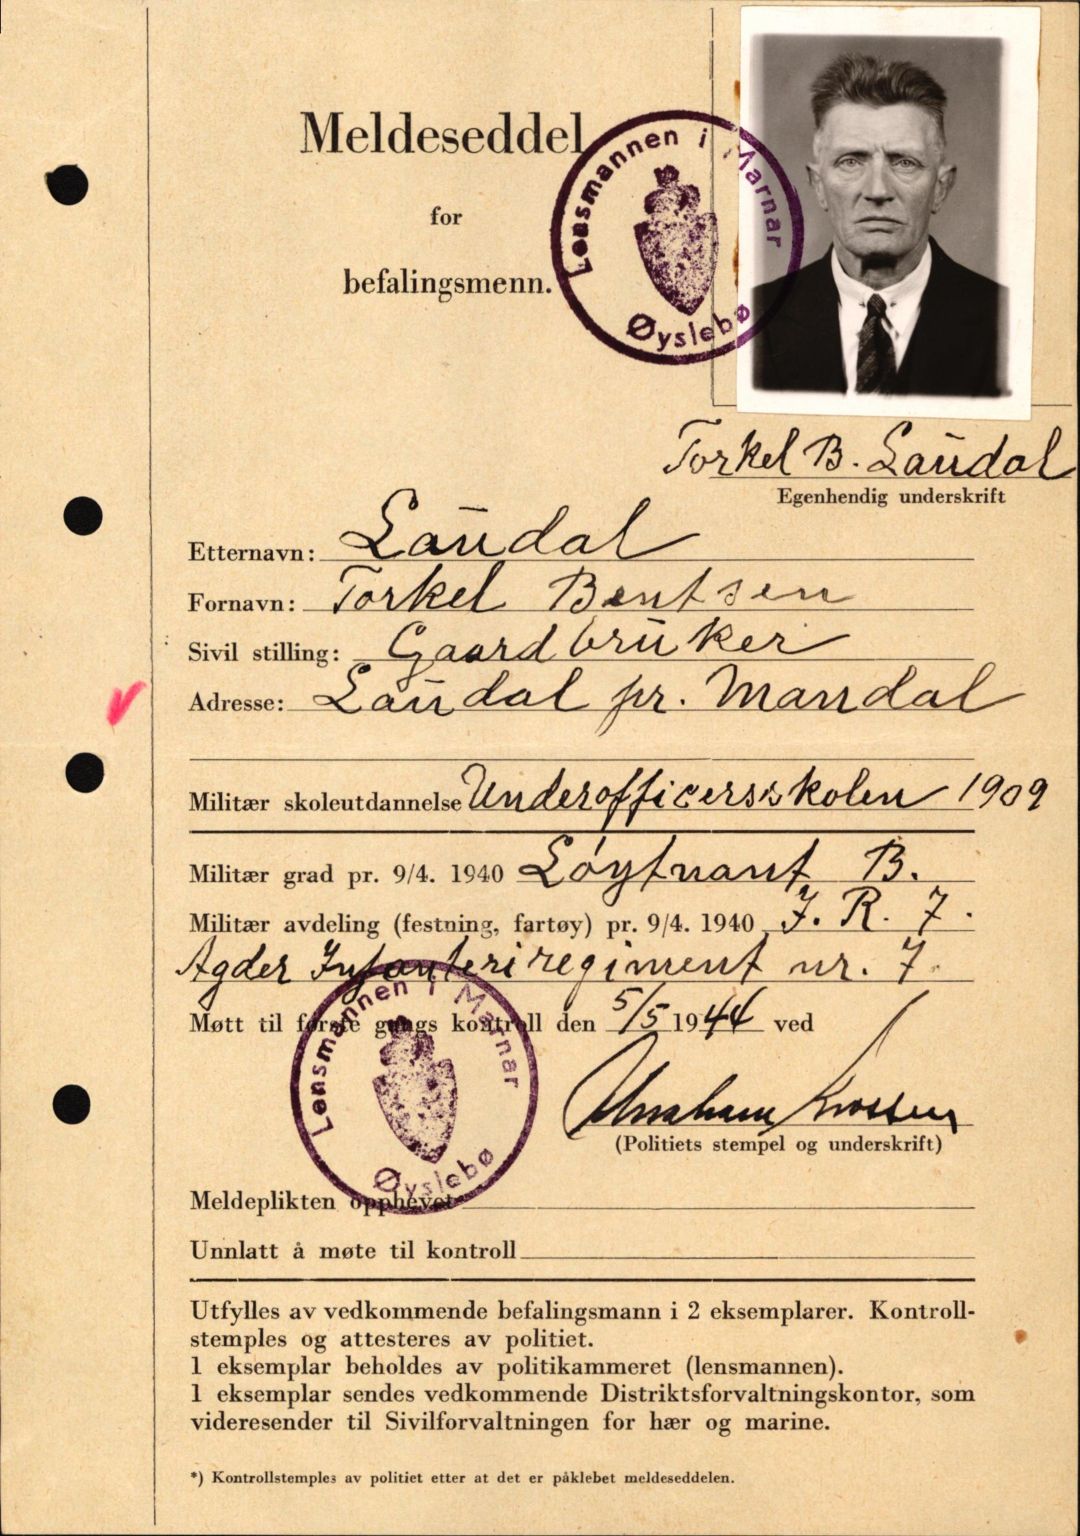 Meldeseddel
for
befalingsmenn.
Lensmannen i Marnar
Øyslebø
Torkel B. Laudal
Egenhendig underskrift
Etternavn: Laudal
Fornavn: Torkel Bentsen
Sivil stilling: Gaardbruker
Adresse: Laudal pr. Mandal
Militær skoleutdannelse Underofficersskolen 1909
Militær grad pr. 9/4. 1940 Løytnant B.
Militær avdeling (festning, fartøy) pr. 9/4. 1940 J. R. 7.
Agder Infanteriregiment nr. 7.
Møtt til første gangs kontroll den 5/5 1944 ved
Lensmannen i Marnar
Øyslebø
(Politiets stempel og underskrift)
Meldeplikten opphevet
Unnlatt å møte til kontroll
Utfylles av vedkommende befalingsmann i 2 eksemplarer. Kontroll-
stemples og attesteres av politiet.
1 eksemplar beholdes av politikammeret (lensmannen).
1 eksemplar sendes vedkommende Distriktsforvaltningskontor, som
videresender til Sivilforvaltningen for hær og marine.
*) Kontrollstemples av politiet etter at det er påklebet meldeseddelen.